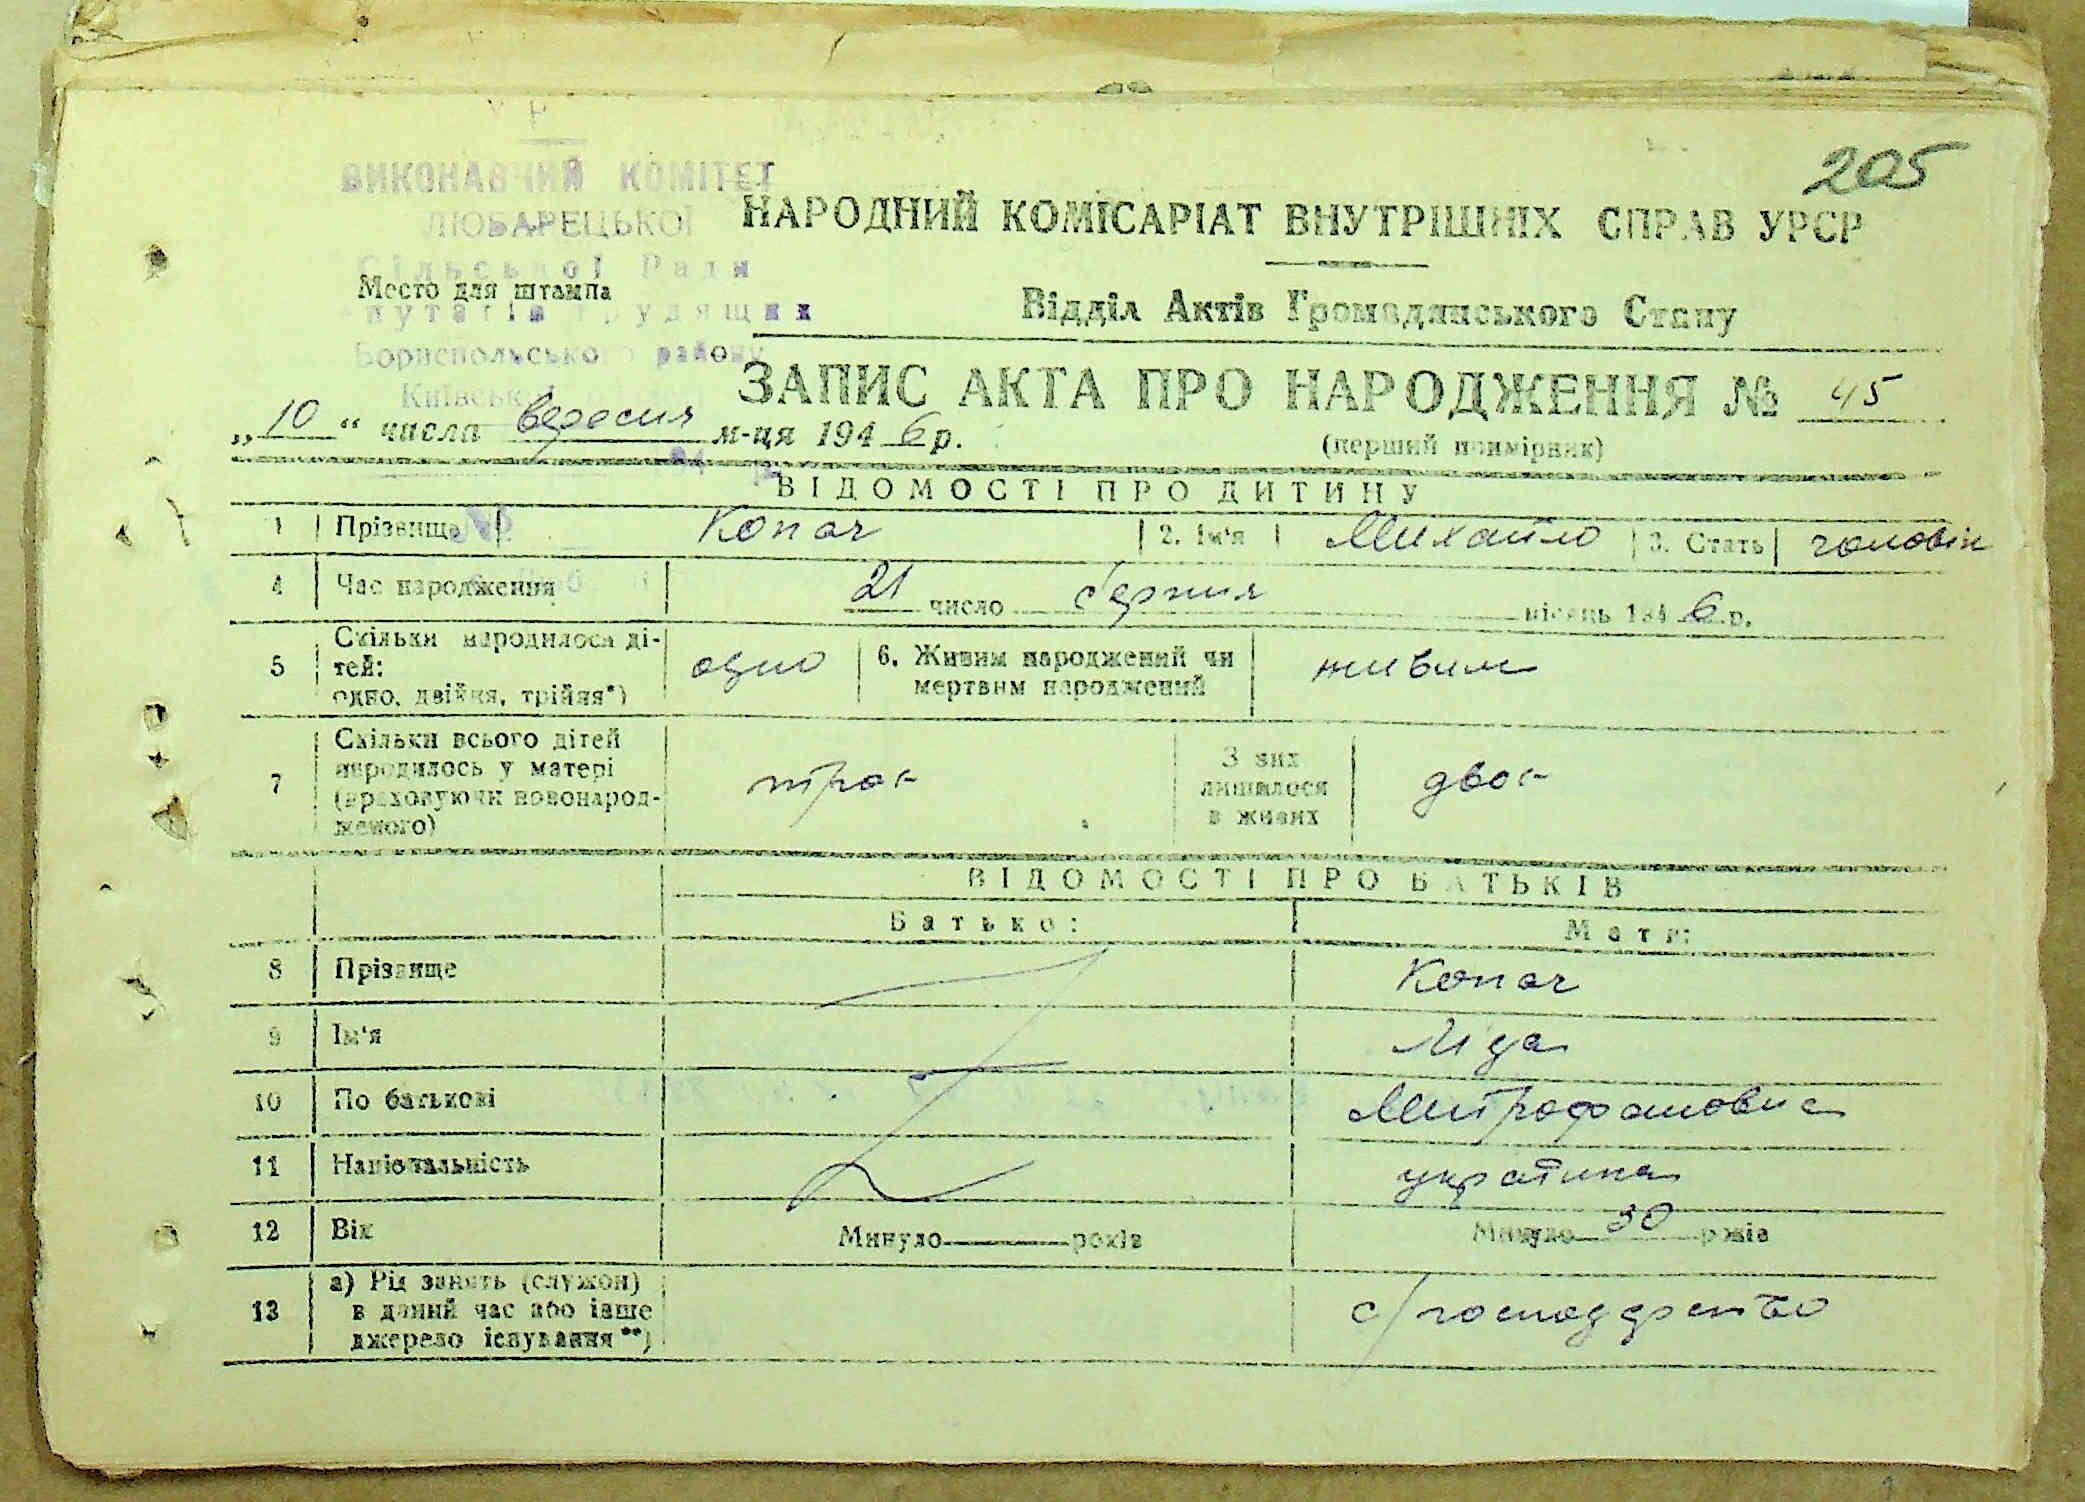 205
ВИКОНАВЧИЙ КОМІТЕТ
ЛЮБАРЕЦЬКОЇ
Сільської Ради
Место для штампа
путатів трудящих
Бориспольського району
Київської
НАРОДНИЙ КОМІСАРІАТ ВНУТРІШНІХ СПРАВ УРСР
Відділ Актів Громадянського Стану
ЗАПИС АКТА ПРО НАРОДЖЕННЯ № 45
(перший примірник)
„10“ числа вересня м-ця 1946 р.
ВІДОМОСТІ ПРО ДИТИНУ
1 Прізвище Копач 2. Ім'я Михайло 3. Стать чоловіч
4 Час народження 21 число серпня місяць 1946 р.
5 Скільки народилося ді-
тей:
одно, двійня, трійня*) одно 6. Живим народжений чи
мертвим народжений живим
7 Скільки всього дітей
народилось у матері
(враховуючи новонарод-
женого) троє З них
лишилося
в живих двоє
ВІДОМОСТІ ПРО БАТЬКІВ
Батько: Мати:
8 Прізвище Копач
9 Ім'я Ліда
10 По батькові Митрофановна
11 Національність українка
12 Вік Минуло років Минуло 30 років
13 а) Рід занять (служби)
в даний час або інше
джерело існування**) с/господарство